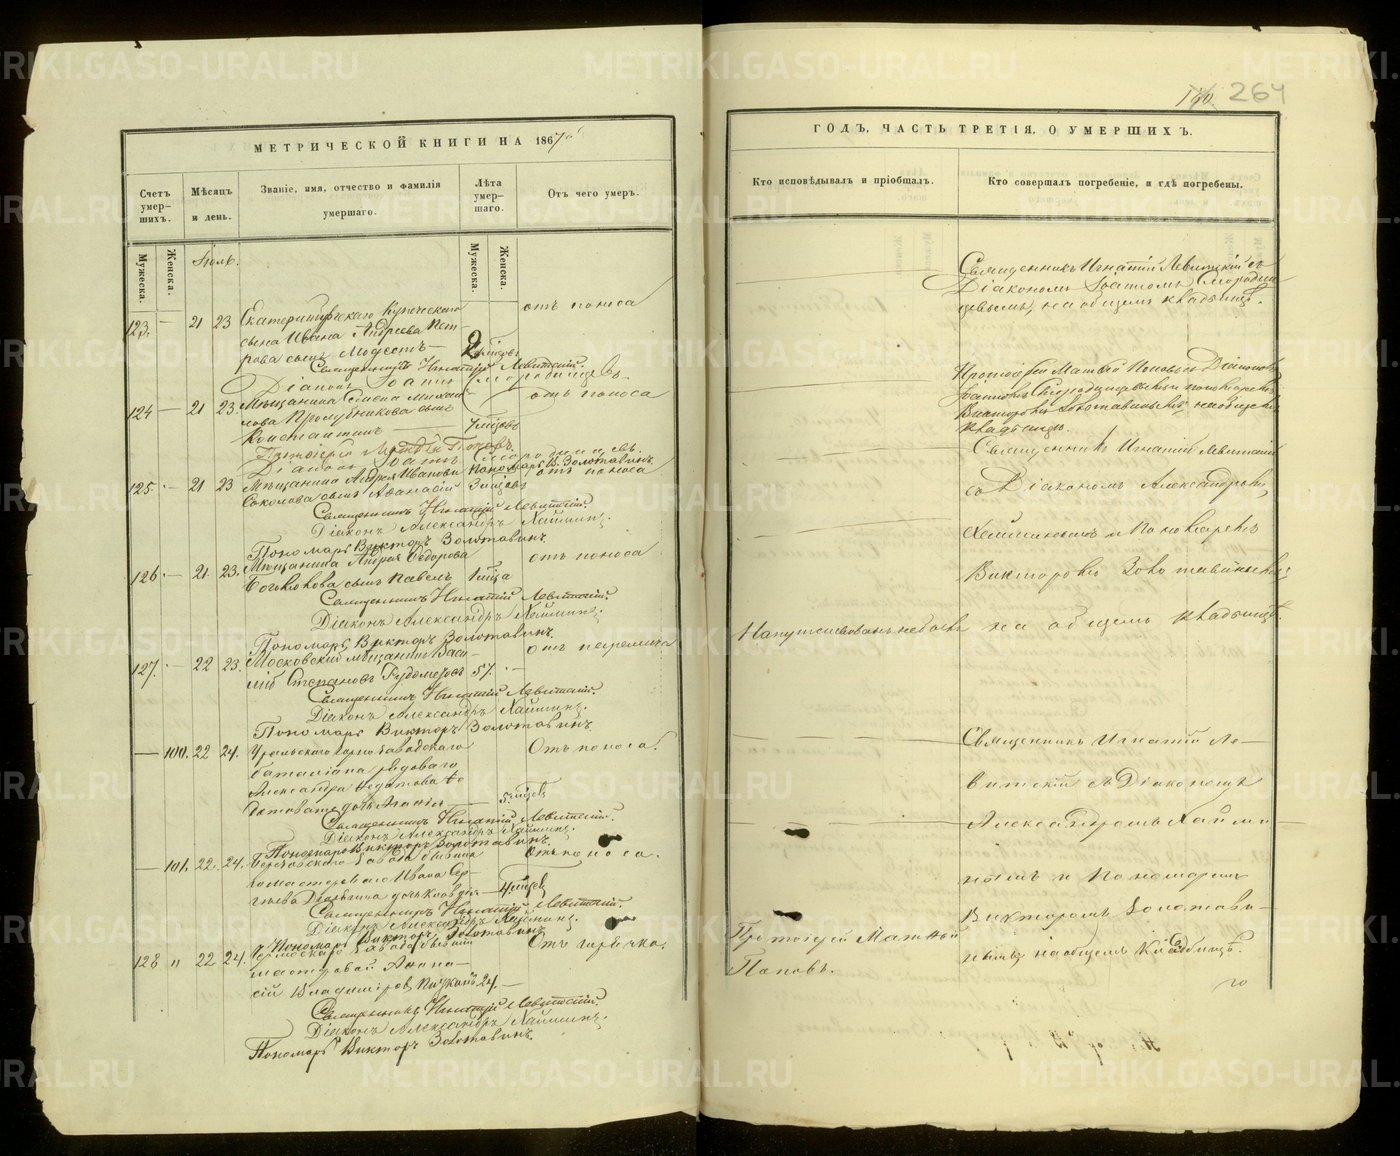 190 264
МЕТРИЧЕСКОЙ КНИГИ НА 1867
ГОДЪ, ЧАСТЬ ТРЕТІЯ, О УМЕРШИХЪ.
Счетъ умер-шихъ.
Мѣсяцъ и день.
Званіе, имя, отчество и фамилія умершаго.
Лѣта умер-шаго.
Отъ чего умеръ.
Кто исповѣдывалъ и пріобщалъ.
Кто совершалъ погребеніе, и гдѣ погребены.
Мужеска.
Женска.
Мужеска.
Женска.
Іюль.
123. — 21 23 Екатеринбургскаго Купеческаго отъ поноса
сына Ивана Андреева Пет-
рова сынъ Модестъ — 2
Священникъ Игнатій Левитскій.
Діаконъ Іоаннъ Смородинцевъ.
124 — 21 23. Мѣщанина Семена Михаи- отъ поноса
лова Прозубщикова сынъ
Константинъ — 7 мѣсцовъ
Протоіерей Матѳей Поповъ.
Діаконъ Іоаннъ Смородинцевъ.
Пономарь В. Золотавинъ.
125 — 21 23 Мѣщанина Андрея Иванова отъ поноса
Соколова сынъ Аѳанасій 3 мѣсцовъ
Священникъ Игнатій Левитскій.
Діаконъ Александръ Хайминъ.
Пономарь Викторъ Золотавинъ.
126 — 21. 23. Мѣщанина Андрея Ѳедорова отъ поноса
сынъ Павелъ 1 мѣсца
Священникъ Игнатій Левитскій.
Діаконъ Александръ Хайминъ.
Пономарь Викторъ Золотавинъ.
127. — 22 23. Московскій мѣщанинъ Васи-
лій Степановъ 57. —
Священникъ Игнатій Левитскій.
Діаконъ Александръ Хайминъ.
Пономарь Викторъ Золотавинъ
— 100. 22 24. Уральскаго горнозаводскаго Отъ поноса.
баталіона рядоваго
Александра Федотова
дочь — 5. мѣсцевъ
Священникъ Игнатій Левитскій.
Діаконъ Александръ Хайминъ.
Пономарь Викторъ Золотавинъ.
— 101, 22. 24. Березовскаго завода Отъ поноса.
мастероваго Ивана Сер-
гѣева дочь Клавдія — 4. мѣсцев
Священникъ Игнатій Левитскій.
Діаконъ Александръ Хайминъ.
Пономарь Викторъ Золотавинъ
128 „ 22 24. завода Отъ горячки.
мастеровой Аѳана-
сій Владиміровъ 24. —
Священникъ Игнатій Левитскій.
Діаконъ Александръ Хайминъ.
Пономарь Викторъ Золотавинъ.
Священникъ Игнатій Левитскій съ
Діакономъ Іоанномъ Смородин-
цевымъ, на общемъ кладбищѣ.
Протоіерей Матѳей Поповъ съ Діакономъ
Іоанномъ Смородинцевымъ и пономаремъ
Викторомъ Золотавинымъ на общемъ
кладбищѣ.
Священникъ Игнатій Левитскій
съ Діакономъ Александромъ
Хайминымъ и Пономаремъ
Викторомъ Золотавинымъ
на общемъ кладбищѣ.
Священникъ Игнатій Ле-
витскій съ Діакономъ
Александромъ Хайми-
нымъ и Пономаремъ
Викторомъ Золотави-
нымъ на общемъ Кладбищѣ.
Протоіерей Матѳей
Поповъ.
METRIKI.GASO-URAL.RU